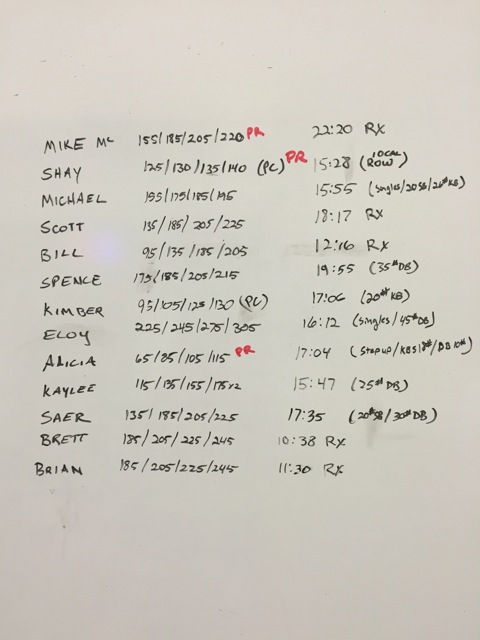 MIKE Mc 155/185/205/220 PR 22:20 RX
SHAY 125/130/135/140 (PC) PR 15:28 (10CAL ROW)
MICHAEL 155/175/185/195 15:55 (singles/20SB/26#KB)
SCOTT 135/185/205/225 18:17 RX
BILL 95/135/185/205 12:16 RX
SPENCE 175/185/205/215 19:55 (35#DB)
KIMBER 95/105/125/130 (PC) 17:06 (20#KB)
ELOY 225/245/275/305 16:12 (singles/45#DB)
ALICIA 65/85/105/115 PR 17:04 (stepup/KBS18#/DB10#)
KAYLEE 115/135/155/175x2 15:47 (25#DB)
SAER 135/185/205/225 17:35 (20#SB/30#DB)
BRETT 185/205/225/245 10:38 RX
BRIAN 185/205/225/245 11:30 RX